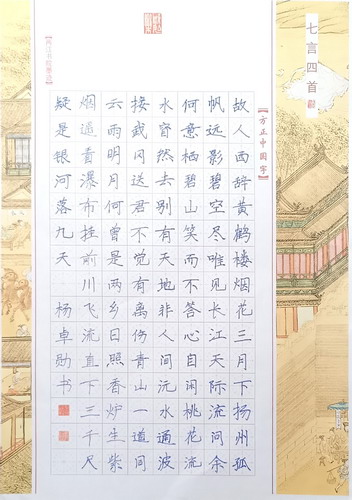 七言四首
【方正中国字】
故人西辞黄鹤楼烟花三月下扬州孤
帆远影碧空尽唯见长江天际流问余
何意栖碧山笑而不答心自闲桃花流
水窅然去别有天地非人间沅水通波
接武冈送君不觉有离伤青山一道同
云雨明月何曾是两乡日照香炉生紫
烟遥看瀑布挂前川飞流直下三千尺
疑是银河落九天 杨卓勋书